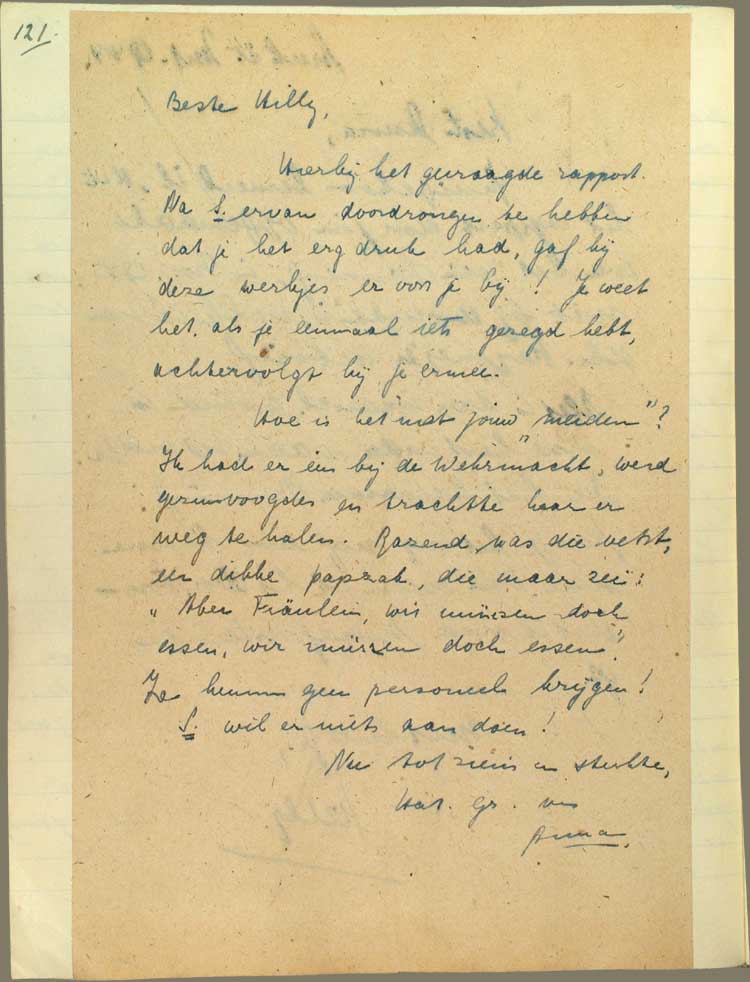 121.
Beste Willy,
Hierbij het gevraagde rapport.
Na S. ervan doordrongen te hebben
dat je het erg druk had, gaf hij
deze werkjes er voor je bij! Je weet
het, als je eenmaal iets gezegd hebt,
achtervolgt hij je ermee.
Hoe is het met jouw „meiden”?
Ik had er één bij de Wehrmacht, werd
gezinsvoogdes en trachtte haar er
weg te halen. Razend was die vetst,
een dikke papzak, die maar zei:
„Aber Fräulein, wir müssen doch
essen, wir müssen doch essen”.
Ze kunnen geen personeel krijgen!
S. wil er niets aan doen!
Nu tot ziens en sterkte,
Hart. gr. van
Anna.